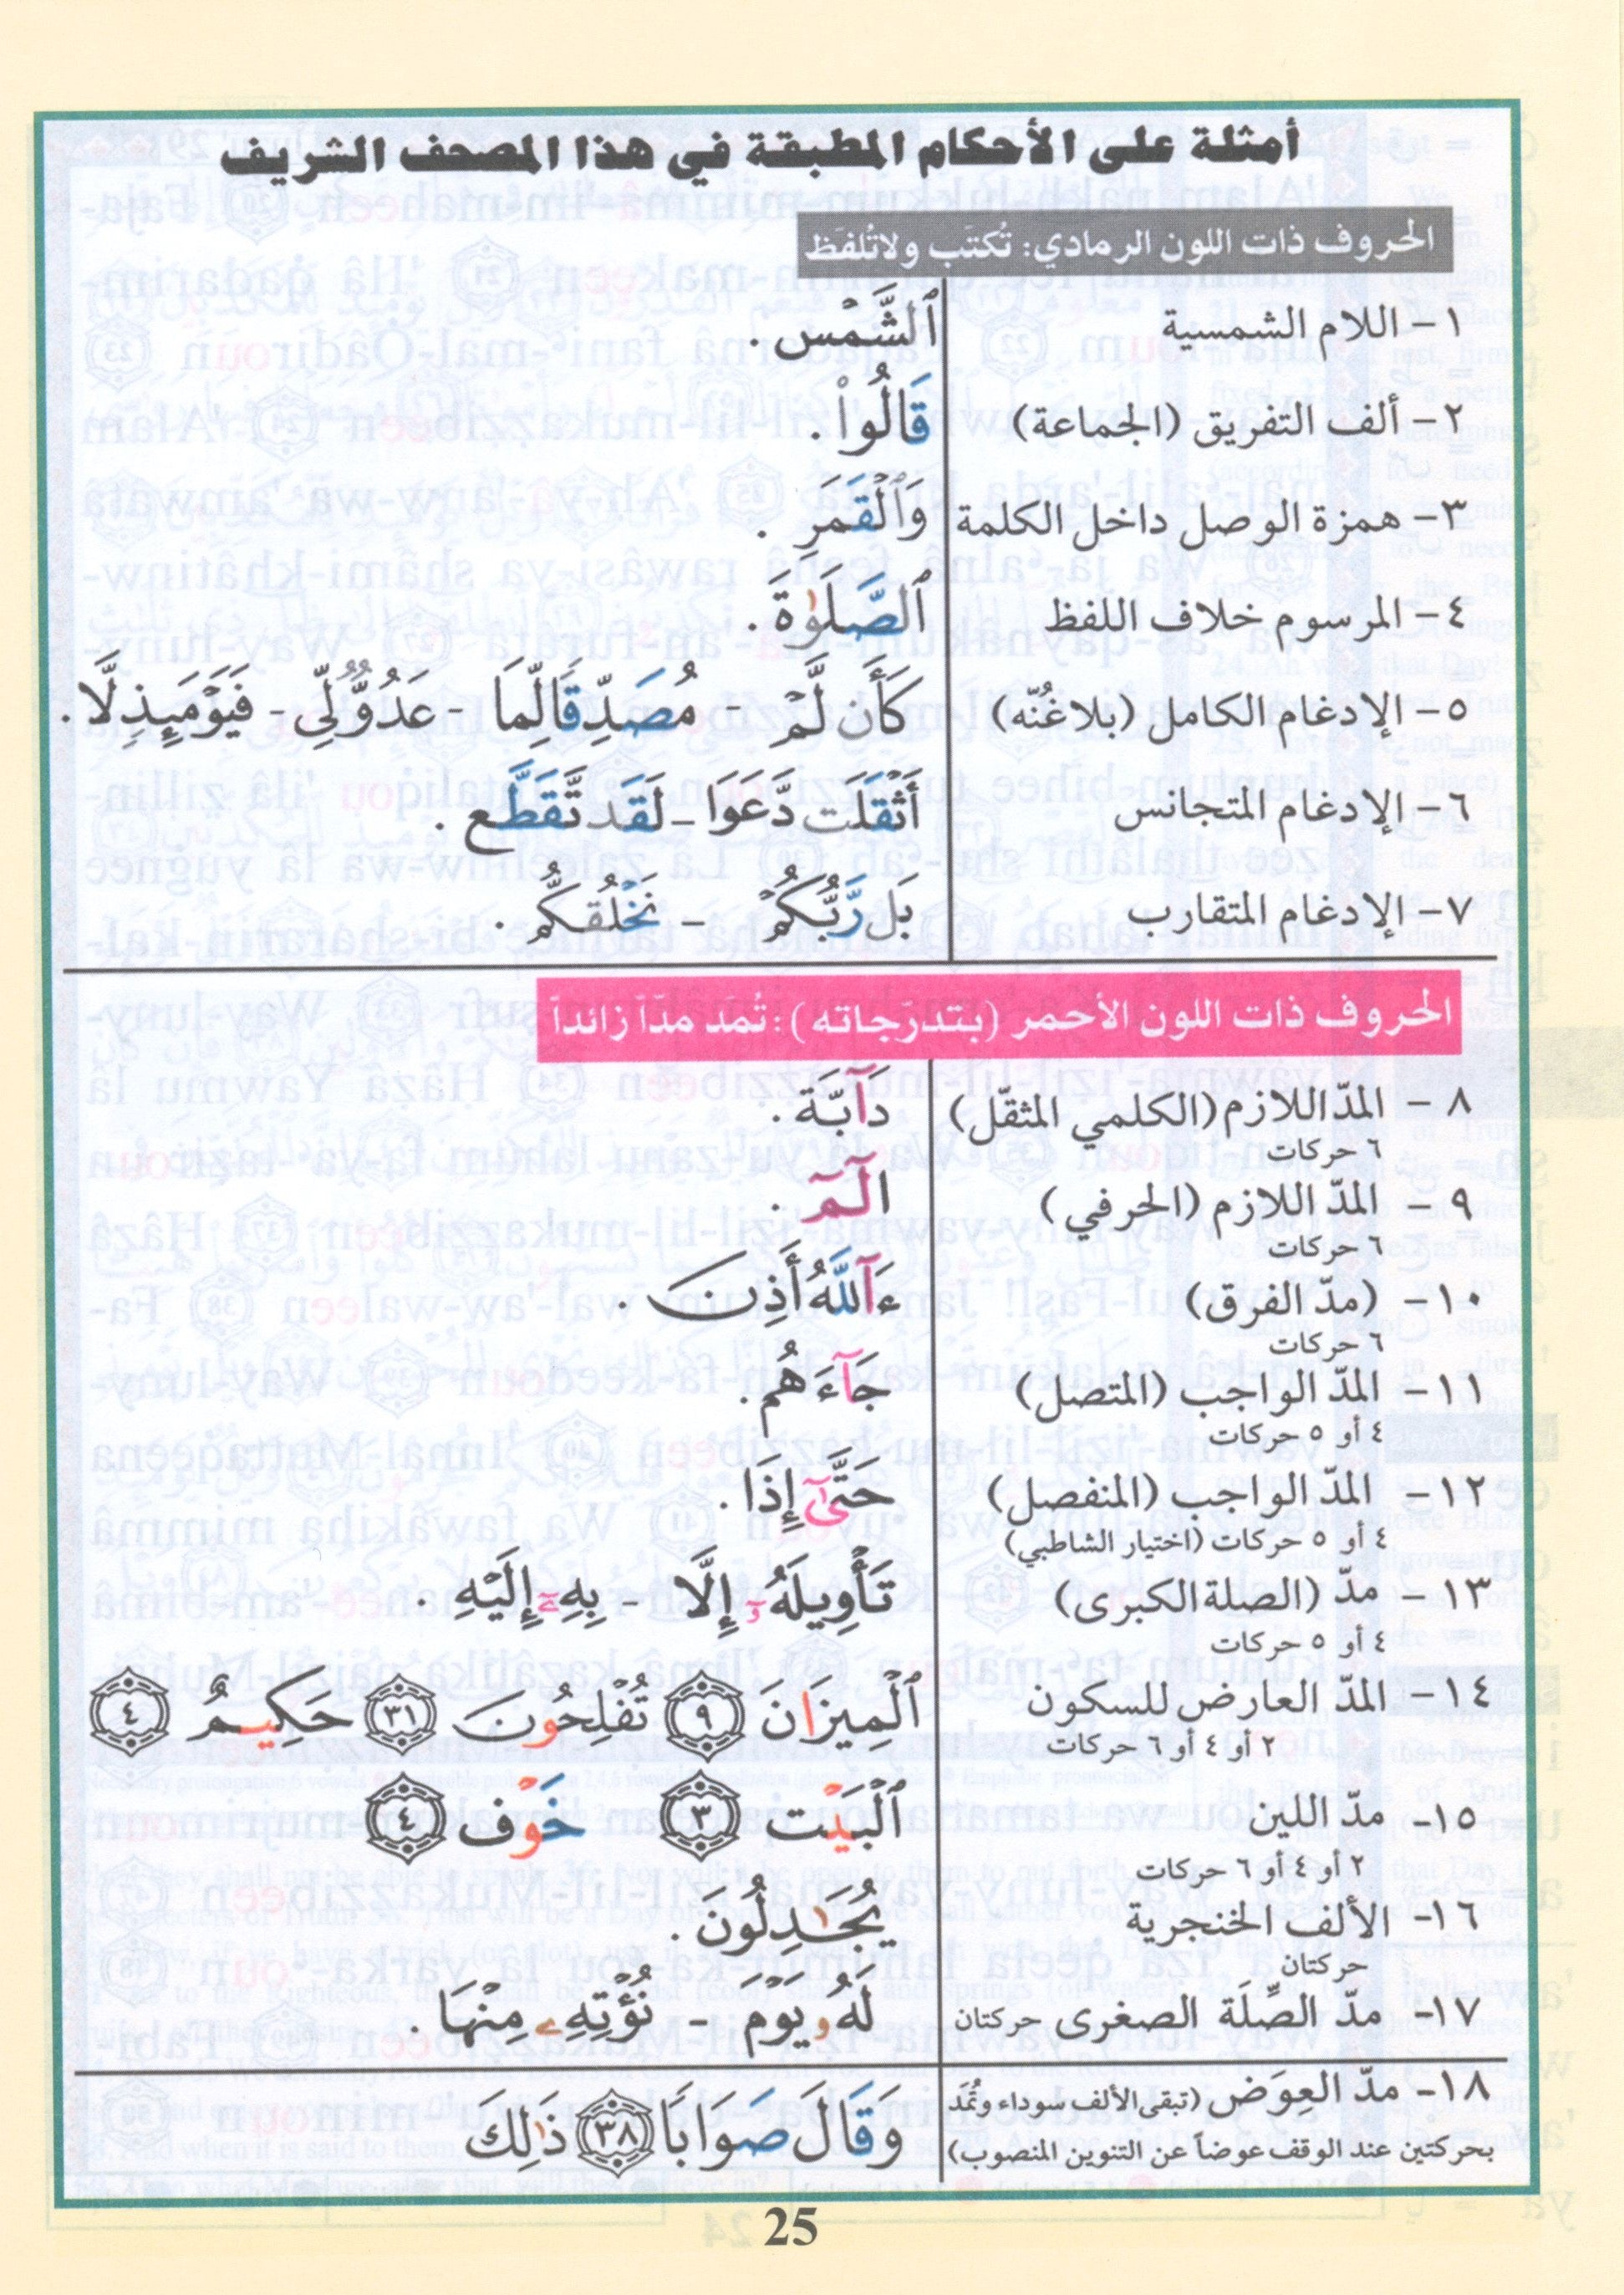 أمثلة على الأحكام المطبقة في هذا المصحف الشريف
الحروف ذات اللون الرمادي: تُكتَب ولاتُلفَظ
١- اللام الشمسية ٱلشَّمْسِ .
٢- ألف التفريق (الجماعة) قَالُواْ .
٣- همزة الوصل داخل الكلمة وَٱلْقَمَرِ .
٤- المرسوم خلاف اللفظ ٱلصَّلَوٰةَ .
٥- الإدغام الكامل (بلاغُنّه) كَأَن لَّمْ - مُصَدِّقَالِّمَا - عَدُوٌّلِّى - فَيَوْمَئِذٍلَّا .
٦- الإدغام المتجانس أَثْقَلَت دَّعَوَا - لَقَد تَّقَطَّع .
٧- الإدغام المتقارب بَل رَّبُّكُمْ - نَخْلُقكُّم .
الحروف ذات اللون الأحمر (بتدرّجاته) : تُمَد مدّاً زائداً
٨ - المدّ اللازم (الكلمي المثقّل) دَآبَّة .
٦ حركات
٩ - المدّ اللازم (الحرفي) الٓمٓ .
٦ حركات
١٠- (مدّ الفرق) ءَآللَّهُ أَذِنَ .
٦ حركات
١١- المدّ الواجب (المتصل) جَآءَهُم .
٤ أو ٥ حركات
١٢- المدّ الواجب (المنفصل) حَتَّىٰٓ إِذَا .
٤ أو ٥ حركات (اختيار الشاطبي)
١٣- مدّ (الصلة الكبرى) تَأْوِيلَهُۥٓ إِلَّا - بِهِۦٓ إِلَيْهِ .
٤ أو ٥ حركات
١٤- المدّ العارض للسكون ٱلْمِيزَانَ ٩ تُفْلِحُونَ ٣١ حَكِيمٌ ٤
٢ أو ٤ أو ٦ حركات
١٥- مدّ اللين ٱلْبَيْت ٣ خَوْف ٤
٢ أو ٤ أو ٦ حركات
١٦- الألف الخنجرية يُجَٰدِلُونَ .
حركتان
١٧- مدّ الصِّلَة الصغرى حركتان لَهُۥ يَوْمَ - نُؤْتِهِۦ مِنْهَا .
١٨- مدّ العِوَض (تبقى الألف سوداء وتُمَد
بحركتين عند الوقف عوضاً عن التنوين المنصوب) وَقَالَ صَوَابًا ٣٨ ذَٰلِكَ
25